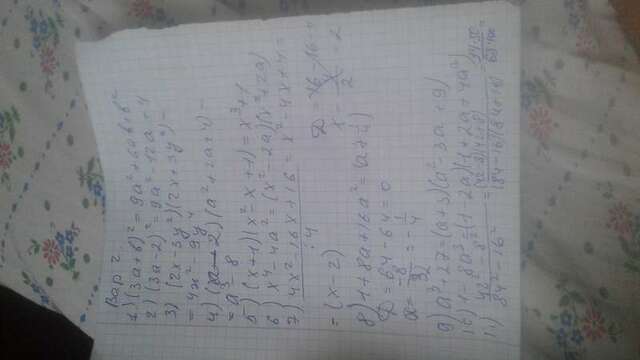 Вар 2.
1) (3a+b)² = 9a²+6ab+b²
2) (3a-2)² = 9a²-12a+4
3) (2x-3y²)(2x+3y²) =
= 4x²-9y⁴
4) (a-2)(a²+2a+4) =
= a³-8
5) (x+1)(x²-x+1) = x³+1
6) x⁴-4a² = (x²-2a)(x²+2a)
7) 4x²-16x+16 = x²-4x+4 =
:4
D = 16-16=0
= (x-2)
x = 4/2 = 2
8) 1+8a+16a² = (a+1/4)
D = 64-64=0
x = -8/32 = -1/4
9) a³+27 = (a+3)(a²-3a+9)
10) 1-8a³ = (1-2a)(1+2a+4a²)
11) 42²-8²/84²-16² = (42-8)(42+8)/(84-16)(84+16) = 34·50/68·100 =